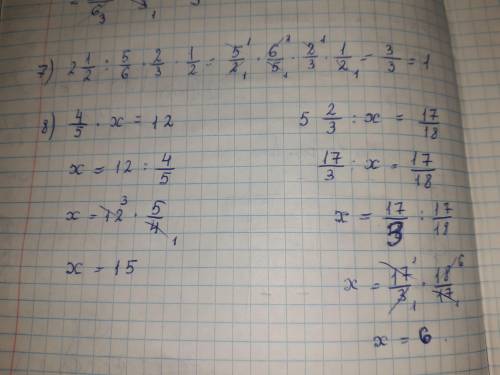 6₃ 1 3
7) 2 1/2 : 5/6 · 2/3 · 1/2 = 5/2 · 6/5 · 2/3 · 1/2 = 3/3 = 1
8) 4/5 · x = 12
x = 12 : 4/5
x = 12 · 5/4
x = 15
5 2/3 : x = 17/18
17/3 : x = 17/18
x = 17/3 : 17/18
x = 17/3 · 18/17
x = 6